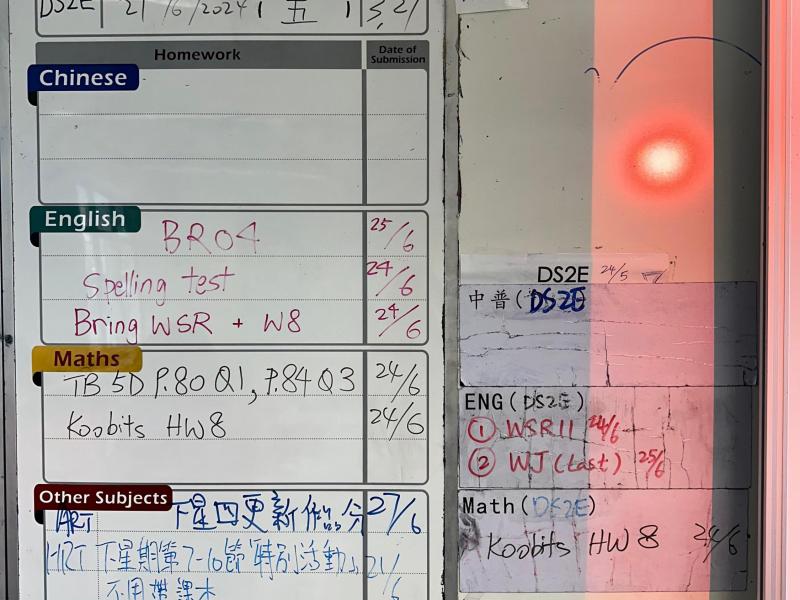 DS2E 21/6/2024 五
Homework Date of Submission
Chinese
English
BR04 25/6
Spelling test 24/6
Bring WSR + W8 24/6
Maths
TB 5D P.80 Q1, P.84 Q3 24/6
Koobits HW8 24/6
Other Subjects
ART 下星四更新作品分 27/6
下星期第7-10節特別活動 21/6
不用帶課本
DS2E 24/5
中普(DS2E
ENG(DS2E)
① WSR11 24/6
② WJ(Last) 25/6
Math(DS2E)
Koobits HW8 24/6